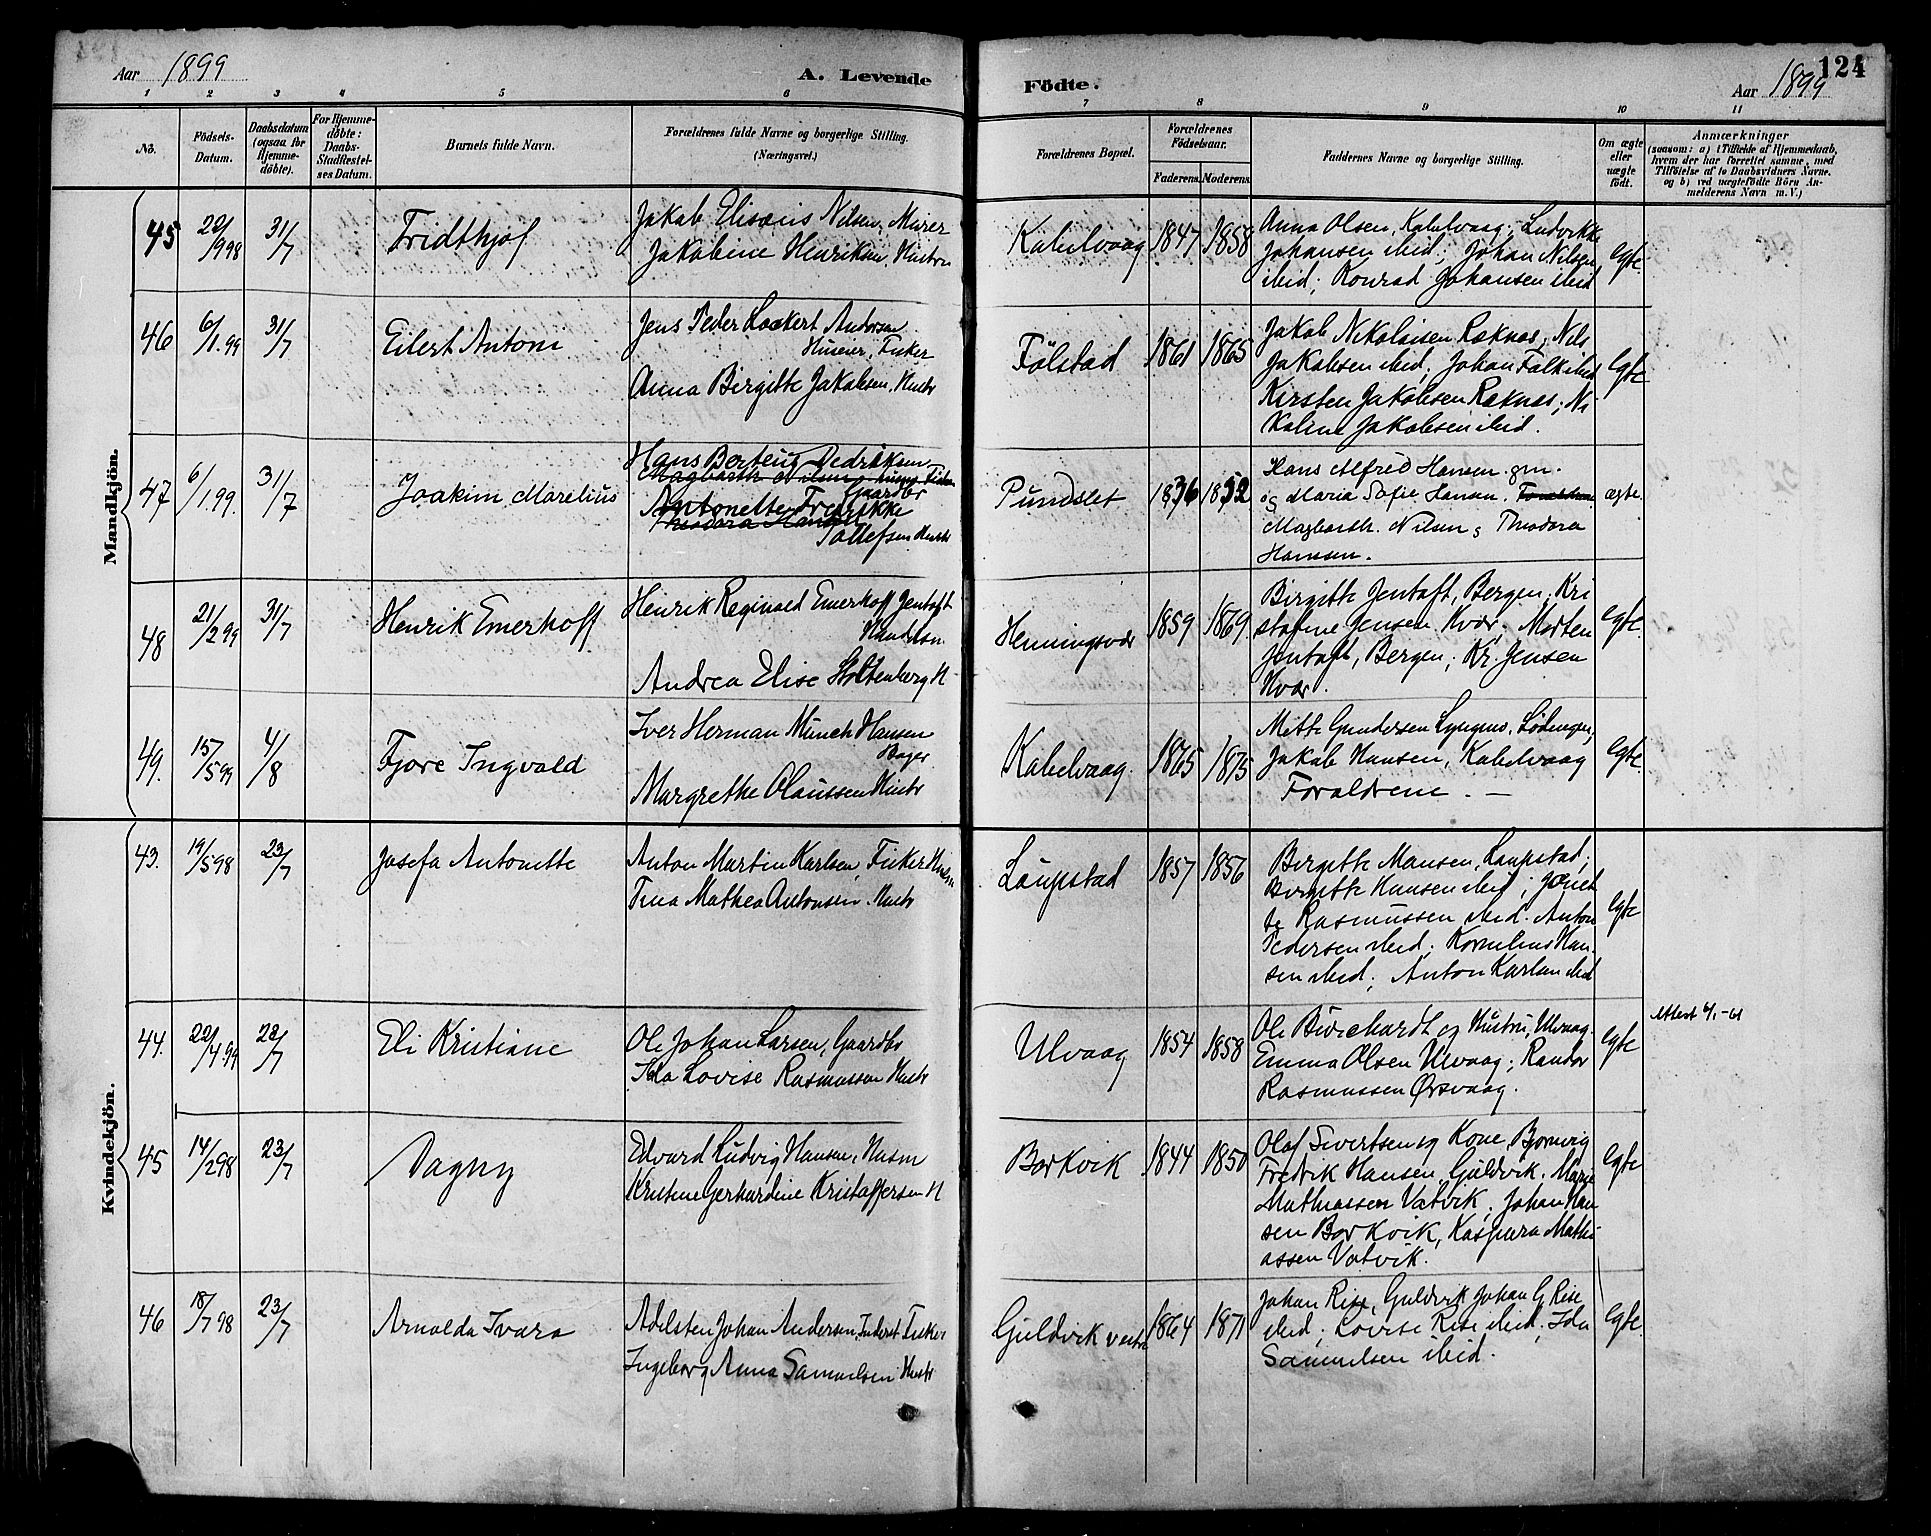 Aar 1899
A. Levende
Födte.
Aar 1899
124
1 2 3 4 5 6 7 8 9 10 11
No.
Födsels-
Datum.
Daabsdatum
(ogsaa for
Hjemme-
döbte).
For Hjemme-
döbte:
Daabs-
Stadfæstel-
ses Datum.
Barnets fulde Navn.
Forældrenes fulde Navne og borgerlige Stilling.
(Næringsvei.)
Forældrenes Bopæl.
Forældrenes
Födselsaar.
Faderens. Moderens.
Faddernes Navne og borgerlige Stilling.
Om ægte
eller
uægte
födt.
Anmærkninger
(saasom: a) i Tilfælde af Hjemmedaab,
hvem der har forrettet samme, med
Tilföielse af to Daabsvidners Navne.
og b) ved uægtefödte Börn An-
melderens Navn m. V.)
Mandkjön.
45 20/9 98 31/7 Fridthjof
Jakob Elisæus Nilsen, Murer
Jakobine Henriksen, Hustru
Kabelvaag 1847 1858
Anna Olsen, Kabelvaag; Ludvikke
Johansen ibid; Johan Nilsen
ibid; Konrad Johansen ibid
Egte.
46 6/1.99 31/7 Eilert Antoni
Jens Peder Lockert Andorsen
Huseier, Fisker
Anna Birgitte Jakobsen, Hustr
Fölstad 1861 1865
Jakob Nikolaisen Reknes; Nils
Jakobsen ibid; Johan Falk ibid
Kirsten Jakobsen Reknes; Ni
koline Jakobsen ibid.
Egte
47 6/1 99. 31/7 Joakim Marelius
Hans Berteus Dedriksen
Gaardbr
Antonette Fredrikke
Tollefsen Hustr
Pundslet 1836 1852
Hans Alfred Hansen gm.
og Maria Sofie Hansen.
Magbarth. Nilsen, Theodora
Hansen.
ægte.
48 21/2 99 31/7 Henrik Emerhoff
Henrik Reginald Emerhoff Jentoft
Handelsm
Andrea Elise Stoltenberg H
Henningsvær 1859 1869.
Birgitte Jentoft, Bergen; Kri
stofine Jensen Hvær; Morten
Jentoft, Bergen; Kr. Jensen
Hvær.
Egte.
49. 15/5 99 4/8 Fjore Ingvald
Iver Herman Münch Hansen
Bager
Margrethe Olaussen Hustr
Kabelvaag. 1865 1875
Mette Gundersen Lyngnes, Lødingen;
Jakob Hansen, Kabelvaag
Foraldrene. —
Egte.
Kvindekjön.
43. 19/5 98 23/7 Josefa Antonette
Anton Martin Karlsen, Fisker
Tina Mathea Antonsen. Hustr
Laupstad 1857 1856
Birgitte Hansen, Laupstad;
Birgitte Hansen ibid; Jænet
te Rasmussen ibid. Anton
Pedersen ibid; Kornelius Han
sen ibid; Anton Karlsen ibid
Egte
44. 22/4.99 22/7 Eli Kristiane
Ole Johan Larsen, Gaardbr
Ida Lovise Rasmussen Hustr
Ulvaag 1854 1858
Ole Burchardt og Hustru, Ulvaag.
Emma Olsen Ulvaag; Randor
Rasmussen Ørsvaag.
Egte
Attest
45 14/2 98 23/7 Dagny
Edvard Ludvig Hansen, Husm
Kristine Gerhardine Kristoffersen H
Borkvik 1844 1850
Olaf Sivertsen og Kone, Bornvig
Fredrik Hansen, Guldvik. Marie
Mathiassen Vatvik; Johan Han
sen Borkvik, Kaspara Mathi
assen Vatvik.
Egte
46 18/7 98 23/7 Arnolda Ivara
Adelsten Johan Andersen, Inderst, Fisker
Ingeborg Anna Samuelsen Hustr
Guldvik vestre 1864 1871
Johan Rise, Guldvik Johan G Rise
ibid; Lovise Rise ibid, Ida
Samuelsen ibid.
Egte.